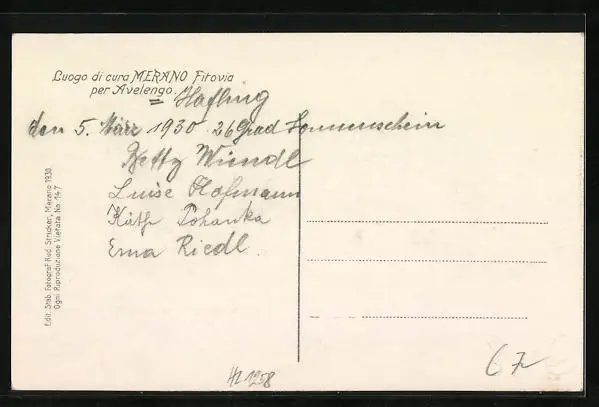 Luogo di cura MERANO Fitovia
per Avelengo.
= Hafling
den 5. März 1930 26 Grad Sonnenschein
Betty Wiendl
Luise Hofmann
Käthe Pohanka
Erna Riedl.
Edit. Stab. Fotograf. Rud. Stricker, Merano 1930.
Ogni Riproduzione Vietata. No. 147
HZ 1258